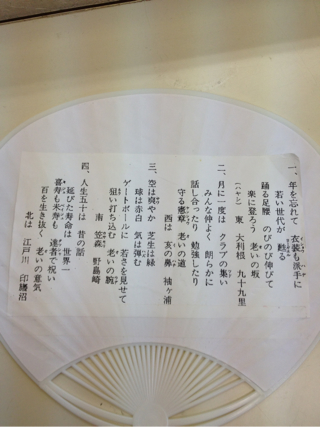 一、年を忘れて 衣装も派手に
若い世代が
踊る足腰 のびのび伸びて
楽に登ろう 老いの坂
(ハヤシ) 東 大利根 九十九里
二、月に一度は クラブの集い
みんな仲よく 朗らかに
話し合ったり 勉強したり
守る憲章 老いの道
西は 亥の鼻 袖ヶ浦
三、空は爽やか 芝生は緑
球は赤白 気は弾む
ゲートボールに 若さを見せて
狙い打ち込む 老いの腕
南 笠森 野島崎
四、人生五十は 昔の話
延びた寿命は 世界一
喜寿も米寿も 達者で祝い
百を生き抜く 老いの意気
北は 江戸川 印旛沼